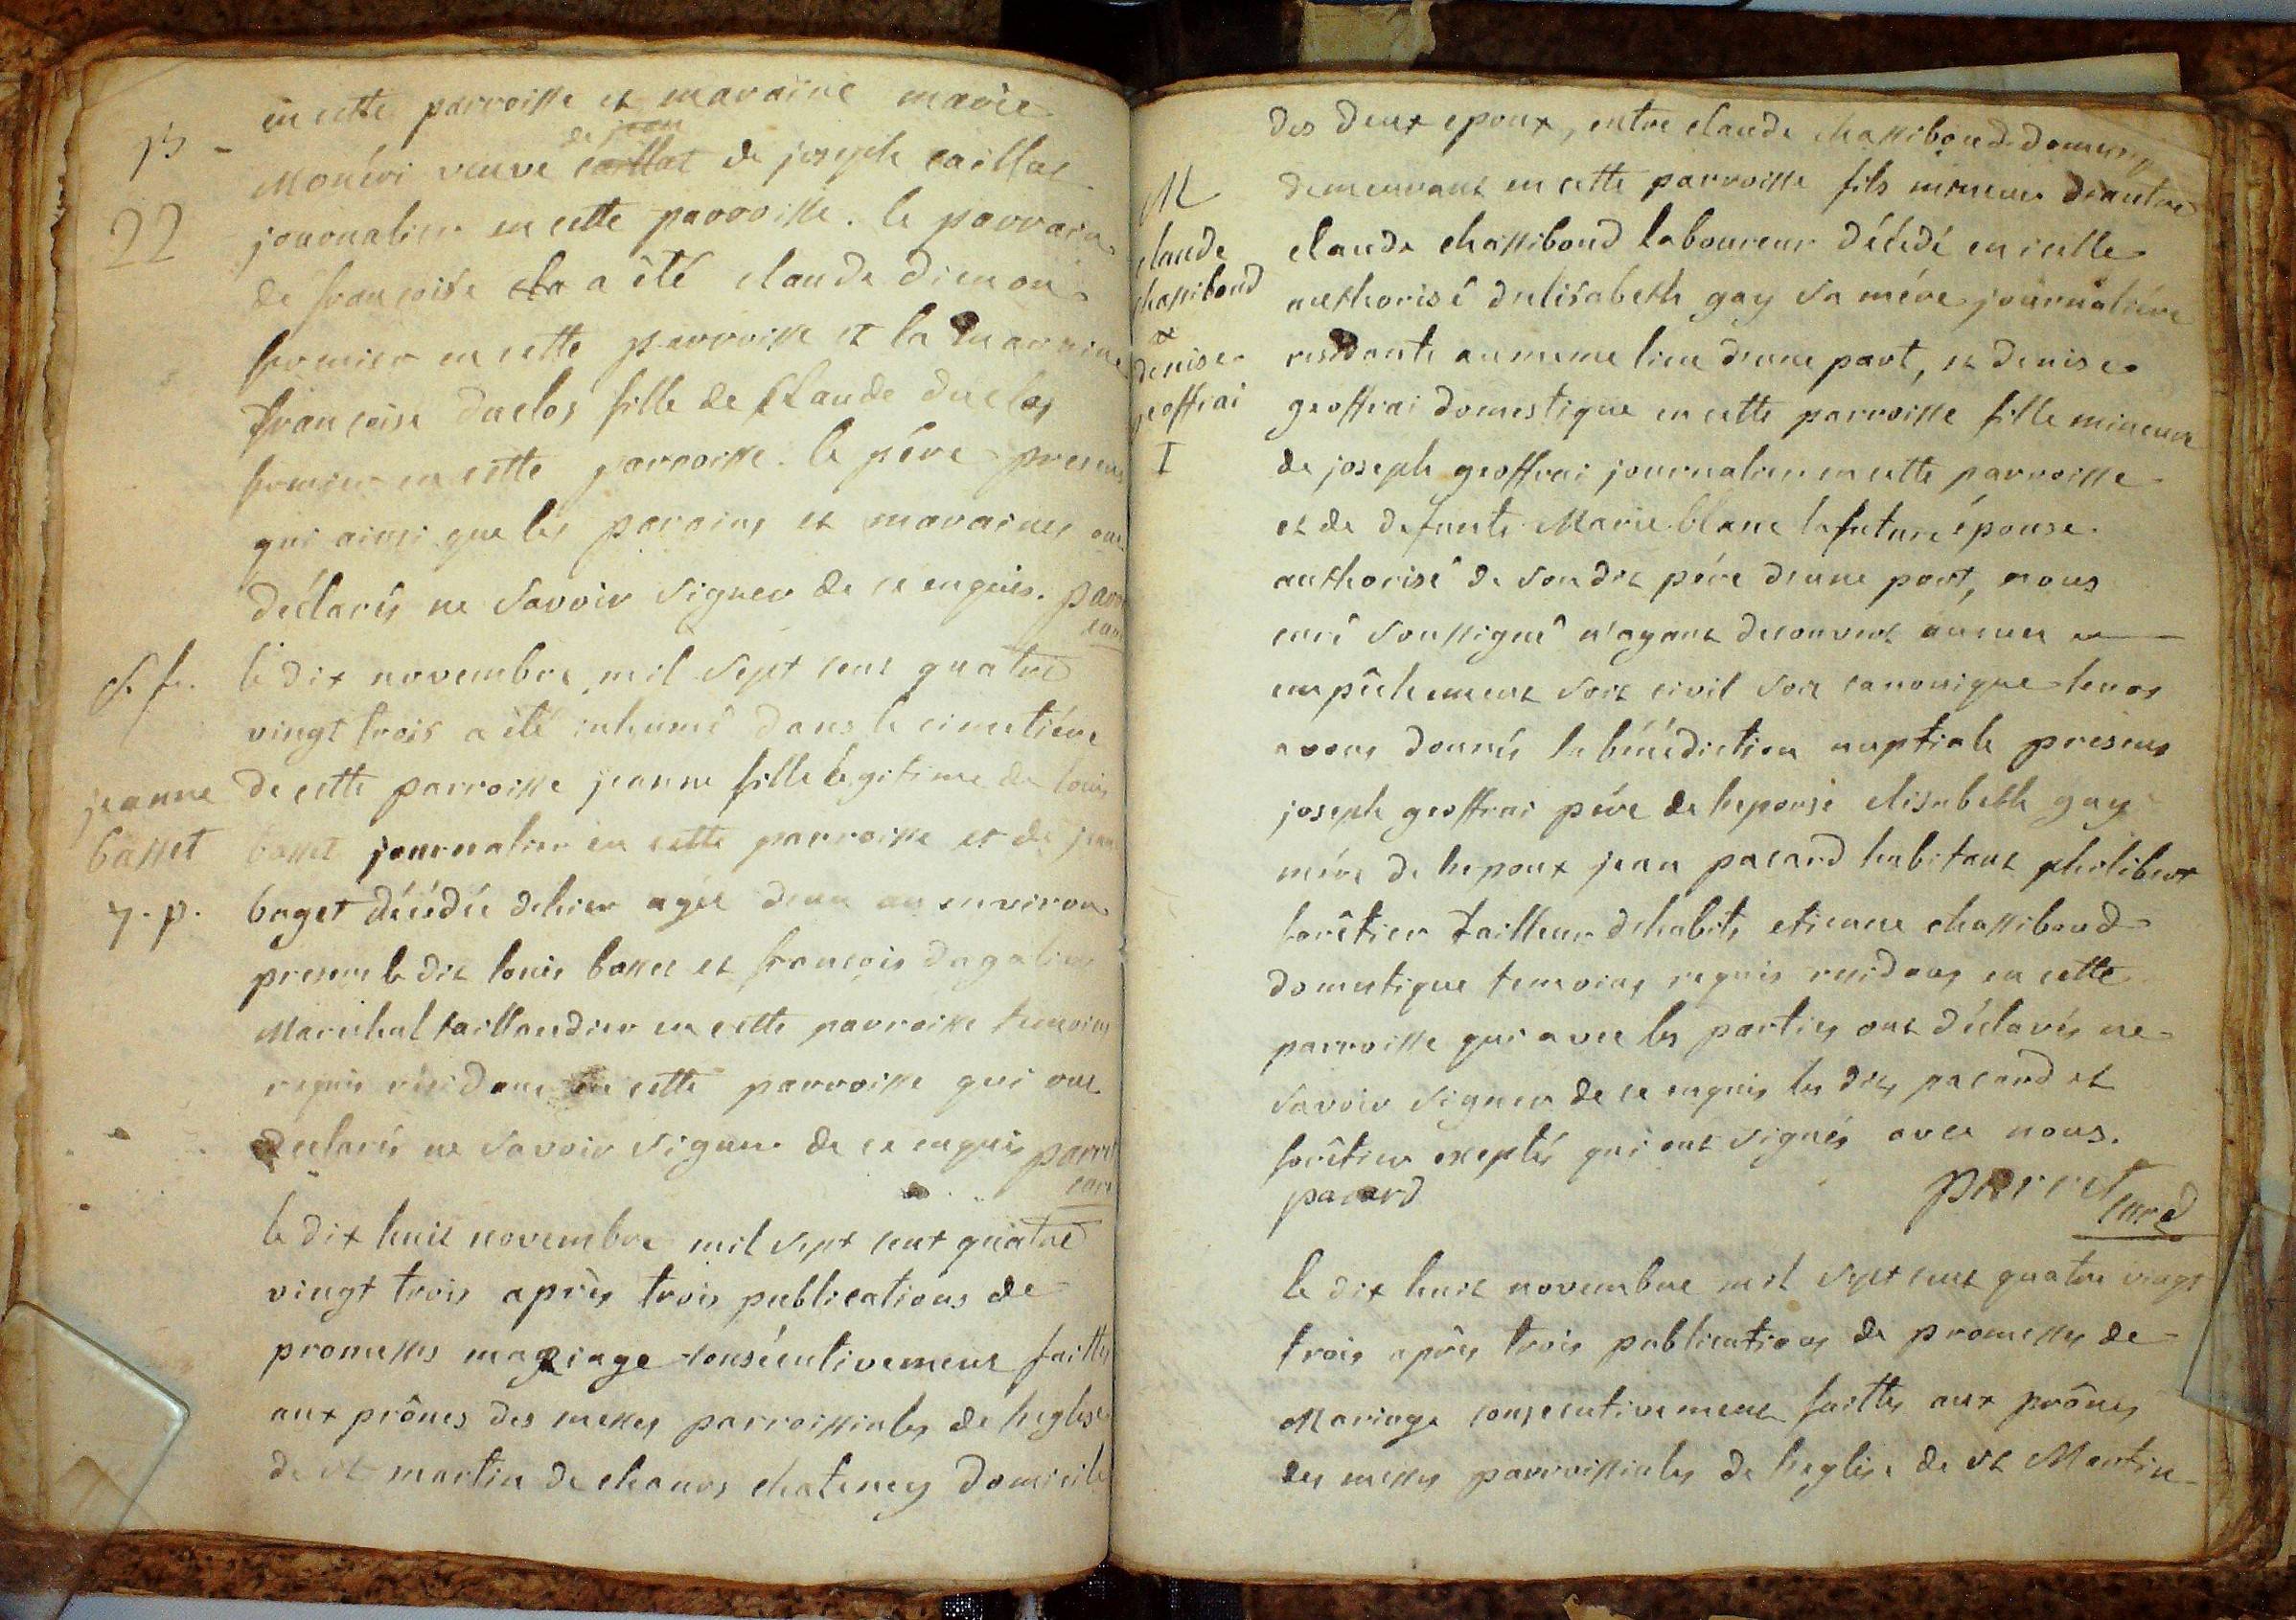 en cette parroisse et maraine marie
B -
de jean
Monéri veuve caillat de joseph caillat
22
journalier en cette parroisse. le parrain
de francoise cla a été claude dimon
fermier en cette parroisse et la marraine
francoise duclos fille de claude duclos
fermier en cette parroisse. le pére present
qui ainsi que les parains et maraines ont
déclarés ne savoir signer de ce enquis. parret
curé
S. f.
le dix novembre mil sept cent quatre
vingt trois a été inhumé dans le cimetiére
jeanne
de cette parroisse jeanne fille légitime de louis
basset
basset journalier en cette parroisse et de jeanne
7. p.
buget décédée dhier agée d'un an environ
present le dit louis basset et francois dagalier
Maréchal taillandier en cette parroisse temoins
requis résidant en cette parroisse qui ont
declarés ne savoir signer de ce enquis parret
curé
le dix huit novembre mil sept cent quatre
vingt trois après trois publications de
promesses mariage consécutivement faittes
aux prônes des messes parroissiales de leglise
de st martin de chanos chateney domicile
des deux epoux, entre claude chassiboud
M
demeurant en cette parroisse fils mineur d'autre
claude
claude chassiboud laboureur décédé en icelle
chassiboud
authorisé d'elisabeth gay sa mére journaliére
et
denise
residante au meme lieu d'une part, et denise
geoffrai
geoffrai domestique en cette parroisse fille mineure
I
de joseph geoffrai journalier en cette parroisse
et de defunte Marie blanc la future épouse
authorisé de son dit pére d'une part, nous
curé soussigné n'ayant decouvert aucun
empêchement soit civil soit canonique leur
avons donnés la bénédiction nuptiale présens
joseph geoffrai pére de lepouse elisabeth gay
mére de lepoux jean pacard habitant philibert
forêtier tailleur dhabits etienne chassiboud
domestique temoins requis residans en cette
parroisse qui avec les parties ont déclarés ne
savoir signer de ce enquis les dits pacard et
forêtier exeptés qui ont signés avec nous.
pacard
parret
curé
le dix huit novembre mil sept cent quatre vingt
trois après trois publications de promesses de
Mariage consecutivement faittes aux prônes
des messes parroissiales de leglise de st Martin